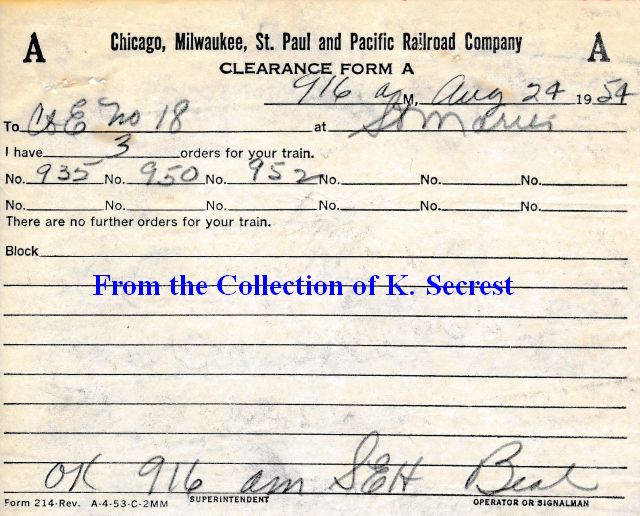 A Chicago, Milwaukee, St. Paul and Pacific Railroad Company A
CLEARANCE FORM A
916 a M, Aug 24 1954
To C&E No 18 at St Maries
I have 3 orders for your train.
No. 935 No. 950 No. 952 No. No. No.
No. No. No. No. No. No.
There are no further orders for your train.
Block
From the Collection of K. Secrest
OK 916 am SEH Beal
SUPERINTENDENT OPERATOR OR SIGNALMAN
Form 214-Rev. A-4-53-C-2MM